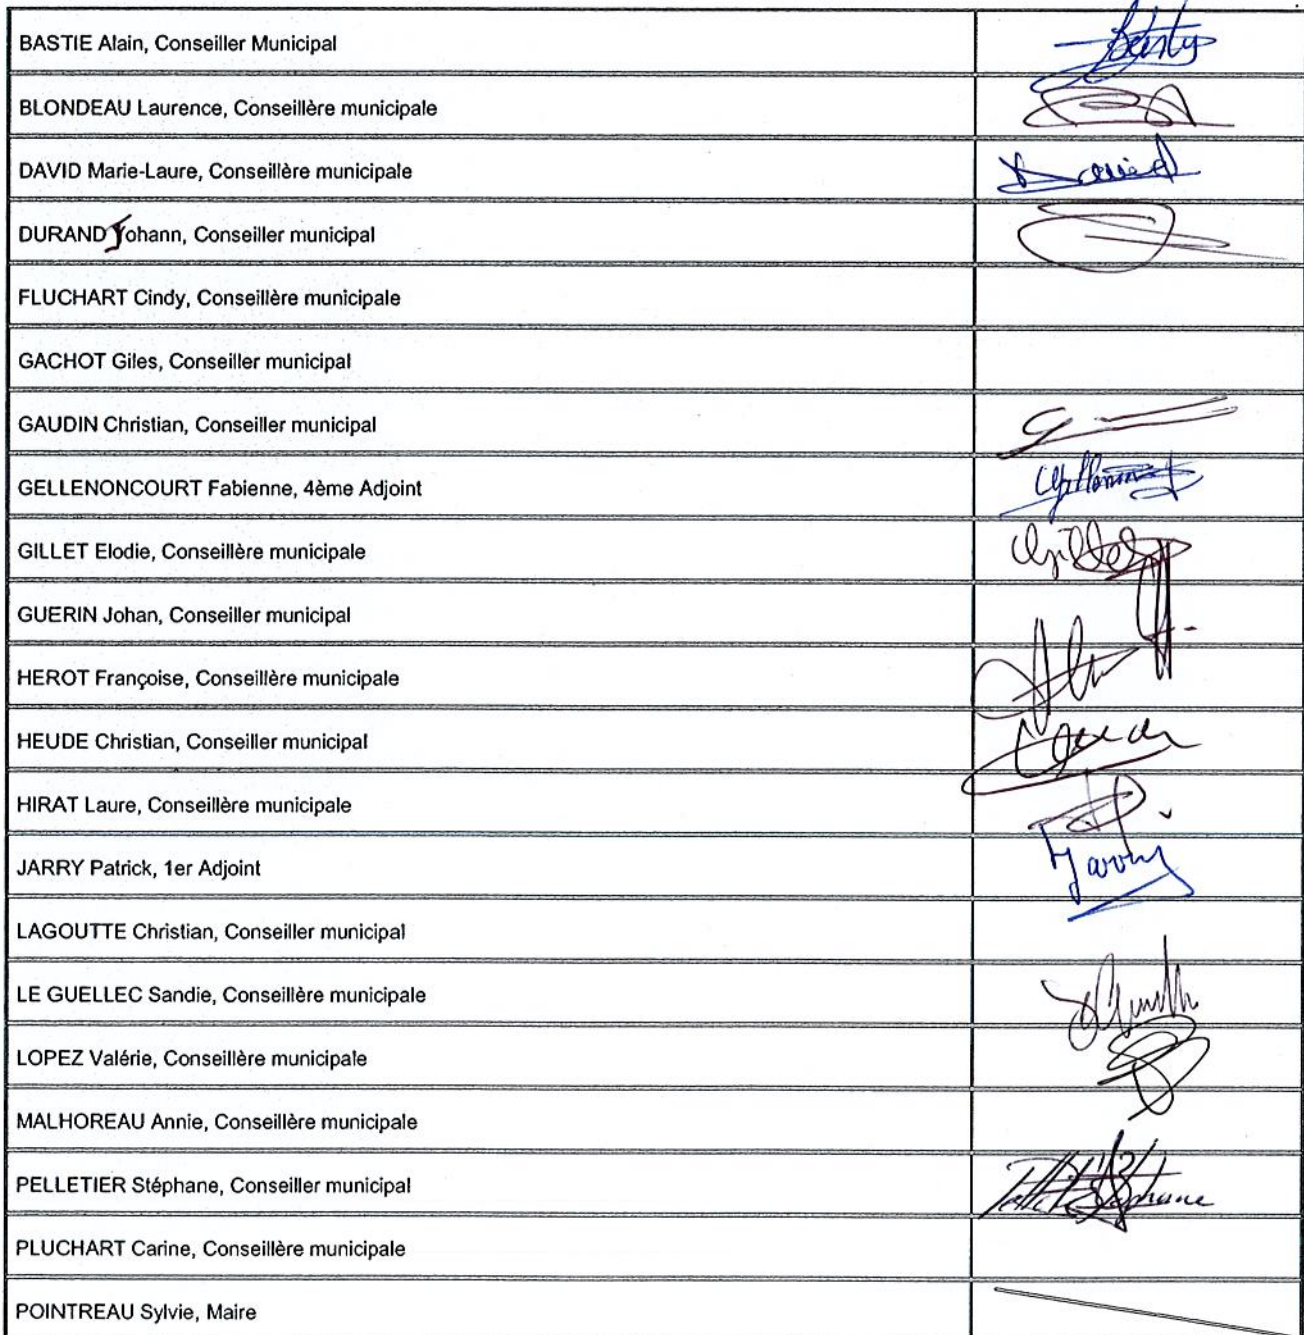 BASTIE Alain, Conseiller Municipal
BLONDEAU Laurence, Conseillère municipale
DAVID Marie-Laure, Conseillère municipale
David
DURAND Johann, Conseiller municipal
FLUCHART Cindy, Conseillère municipale
GACHOT Giles, Conseiller municipal
GAUDIN Christian, Conseiller municipal
GELLENONCOURT Fabienne, 4ème Adjoint
GILLET Elodie, Conseillère municipale
GUERIN Johan, Conseiller municipal
HEROT Françoise, Conseillère municipale
HEUDE Christian, Conseiller municipal
HIRAT Laure, Conseillère municipale
JARRY Patrick, 1er Adjoint
Jarry
LAGOUTTE Christian, Conseiller municipal
LE GUELLEC Sandie, Conseillère municipale
LOPEZ Valérie, Conseillère municipale
MALHOREAU Annie, Conseillère municipale
PELLETIER Stéphane, Conseiller municipal
PLUCHART Carine, Conseillère municipale
POINTREAU Sylvie, Maire